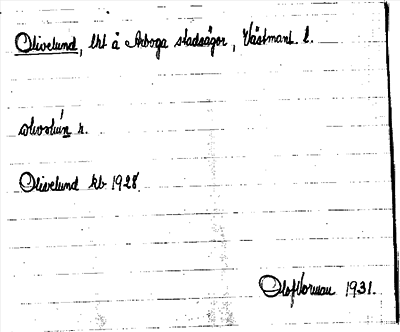 Olivelund, lht å Arboga stadsägor, Västmanl. l.
n.
Olivelund kb 1928.
Olof Norman 1931.